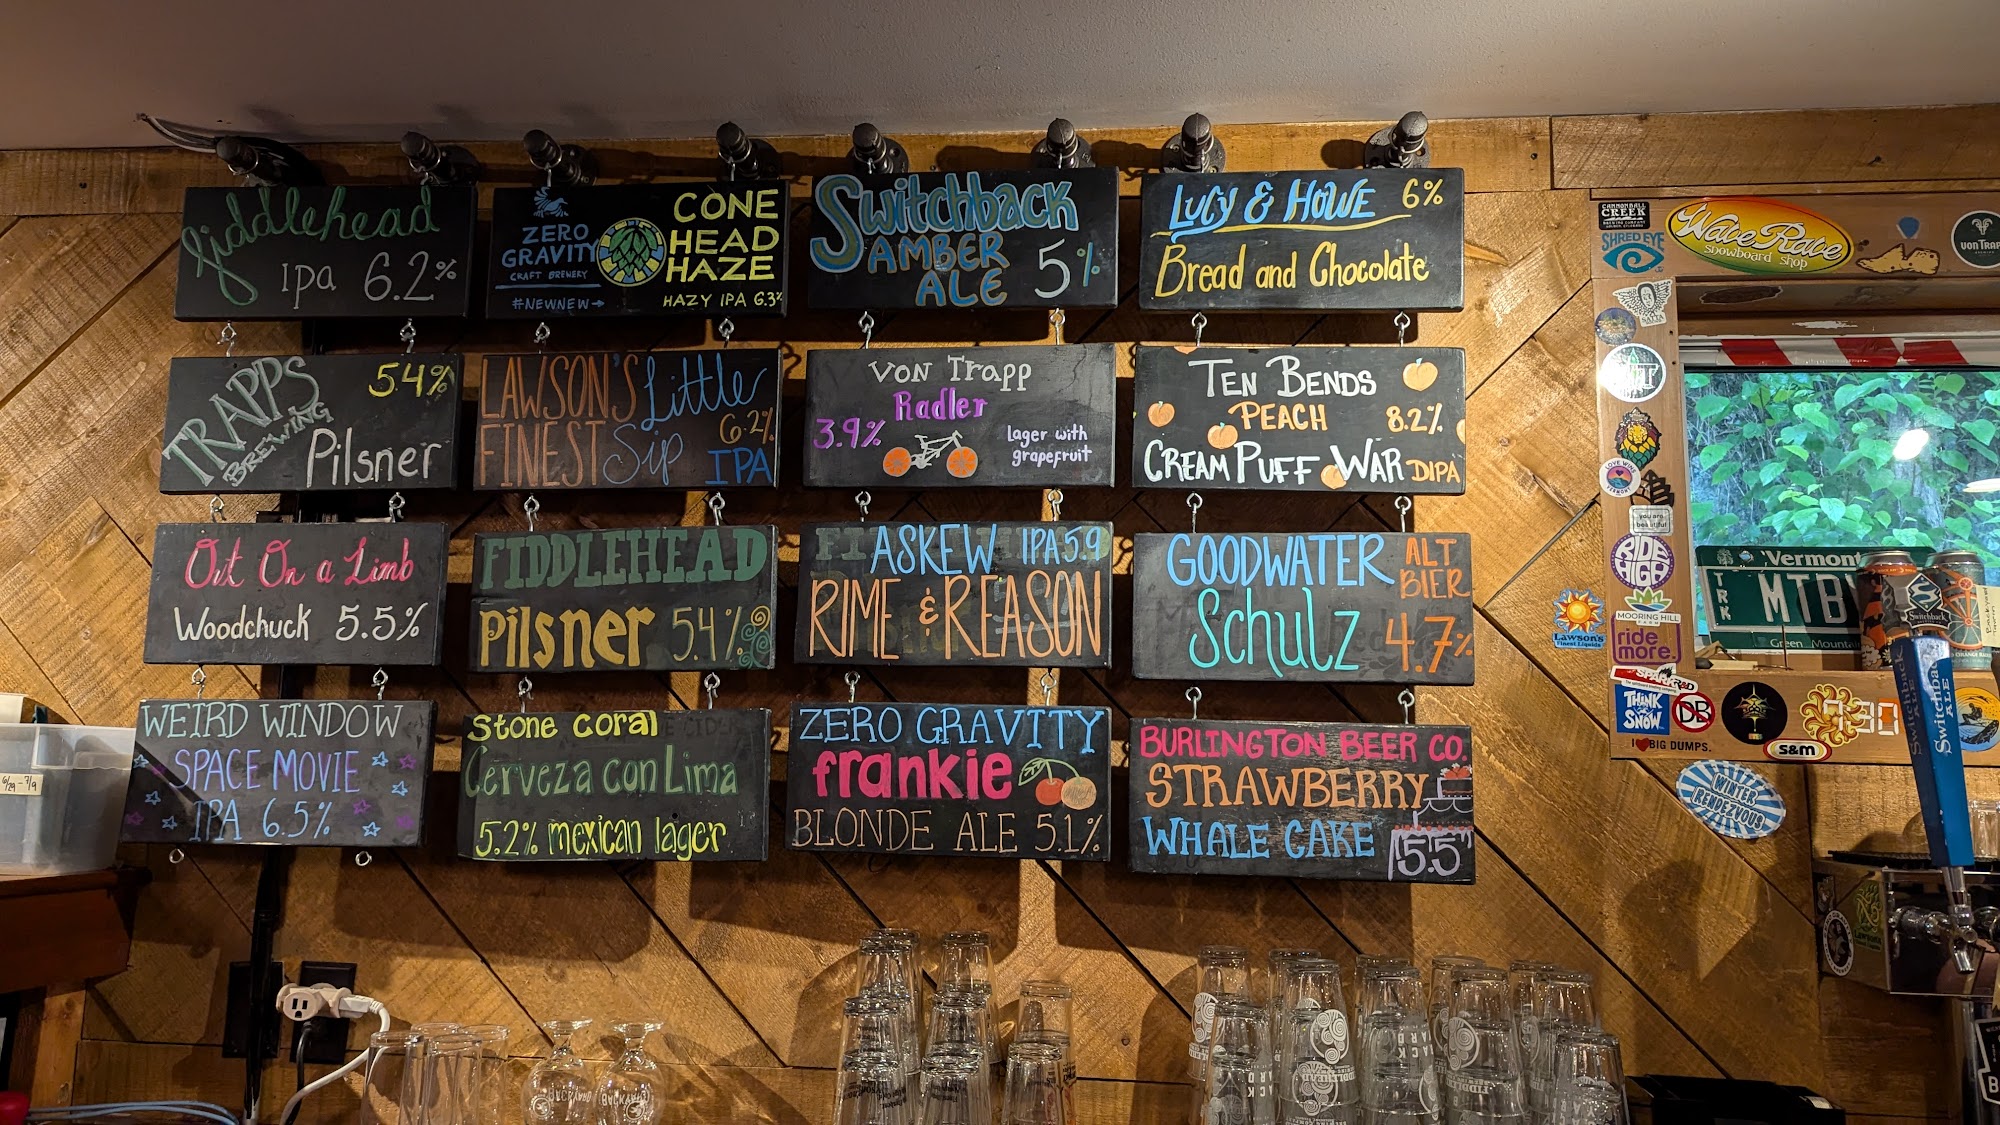 fiddlehead
IPA 6.2%
ZERO
GRAVITY
CRAFT BREWERY
#NEWNEW→
CONE
HEAD
HAZE
HAZY IPA 6.3%
Switchback
AMBER
ALE 5%
LUCY & HOWE 6%
Bread and Chocolate
TRAPPS
BREWING
5.4%
Pilsner
LAWSON'S
FINEST
Little
Sip
6.2%
IPA
VON Trapp
Radler
3.9%
lager with
grapefruit
TEN BENDS
PEACH 8.2%
CREAM PUFF WAR DIPA
Out On a Limb
Woodchuck 5.5%
FIDDLEHEAD
Pilsner 5.4%
ASKEW IPA 5.9
RIME & REASON
GOODWATER
Schulz
ALT
BIER
4.7%
WEIRD WINDOW
SPACE MOVIE
IPA 6.5%
Stone Coral
Cerveza con Lima
5.2% mexican lager
ZERO GRAVITY
frankie
BLONDE ALE 5.1%
BURLINGTON BEER CO.
STRAWBERRY
WHALE CAKE
5.5
CANNONBALL
CREEK
SHRED EYE
Wave Rave
Snowboard Shop
VON TRAPP
LOVE WINS
you are
beautiful
RIDE
HIGH
MOORING HILL
FARM
ride
more.
Lawson's
Finest Liquids
SPARK R&D
THINK
SNOW
DB
I BIG DUMPS.
S&M
WINTER
RENDEZVOUS
'Vermont
TRK
MTB
Green Mountain
Switchback
Switchback
ALE
6/29 - 7/9
BACKYARD
FIDDLEHEAD